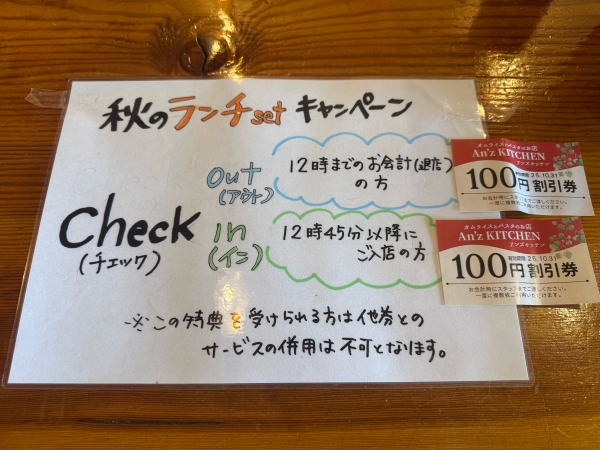 秋のランチset キャンペーン
Check
(チェック)
out
(アウト)
12時までのお会計(退店)
の方
in
(イン)
12時45分以降に
ご入店の方
※この特典を受けられる方は他券との
サービスの併用は不可となります。
オムライスとパスタのお店
An'z KITCHEN
アンズキッチン
有効期限 25.10.31
100円割引券
お会計時にスタッフまでご渡しください。
一度に複数枚ご利用いただけます。
オムライスとパスタのお店
An'z KITCHEN
アンズキッチン
有効期限 25.10.31
100円割引券
お会計時にスタッフまでご渡しください。
一度に複数枚ご利用いただけます。